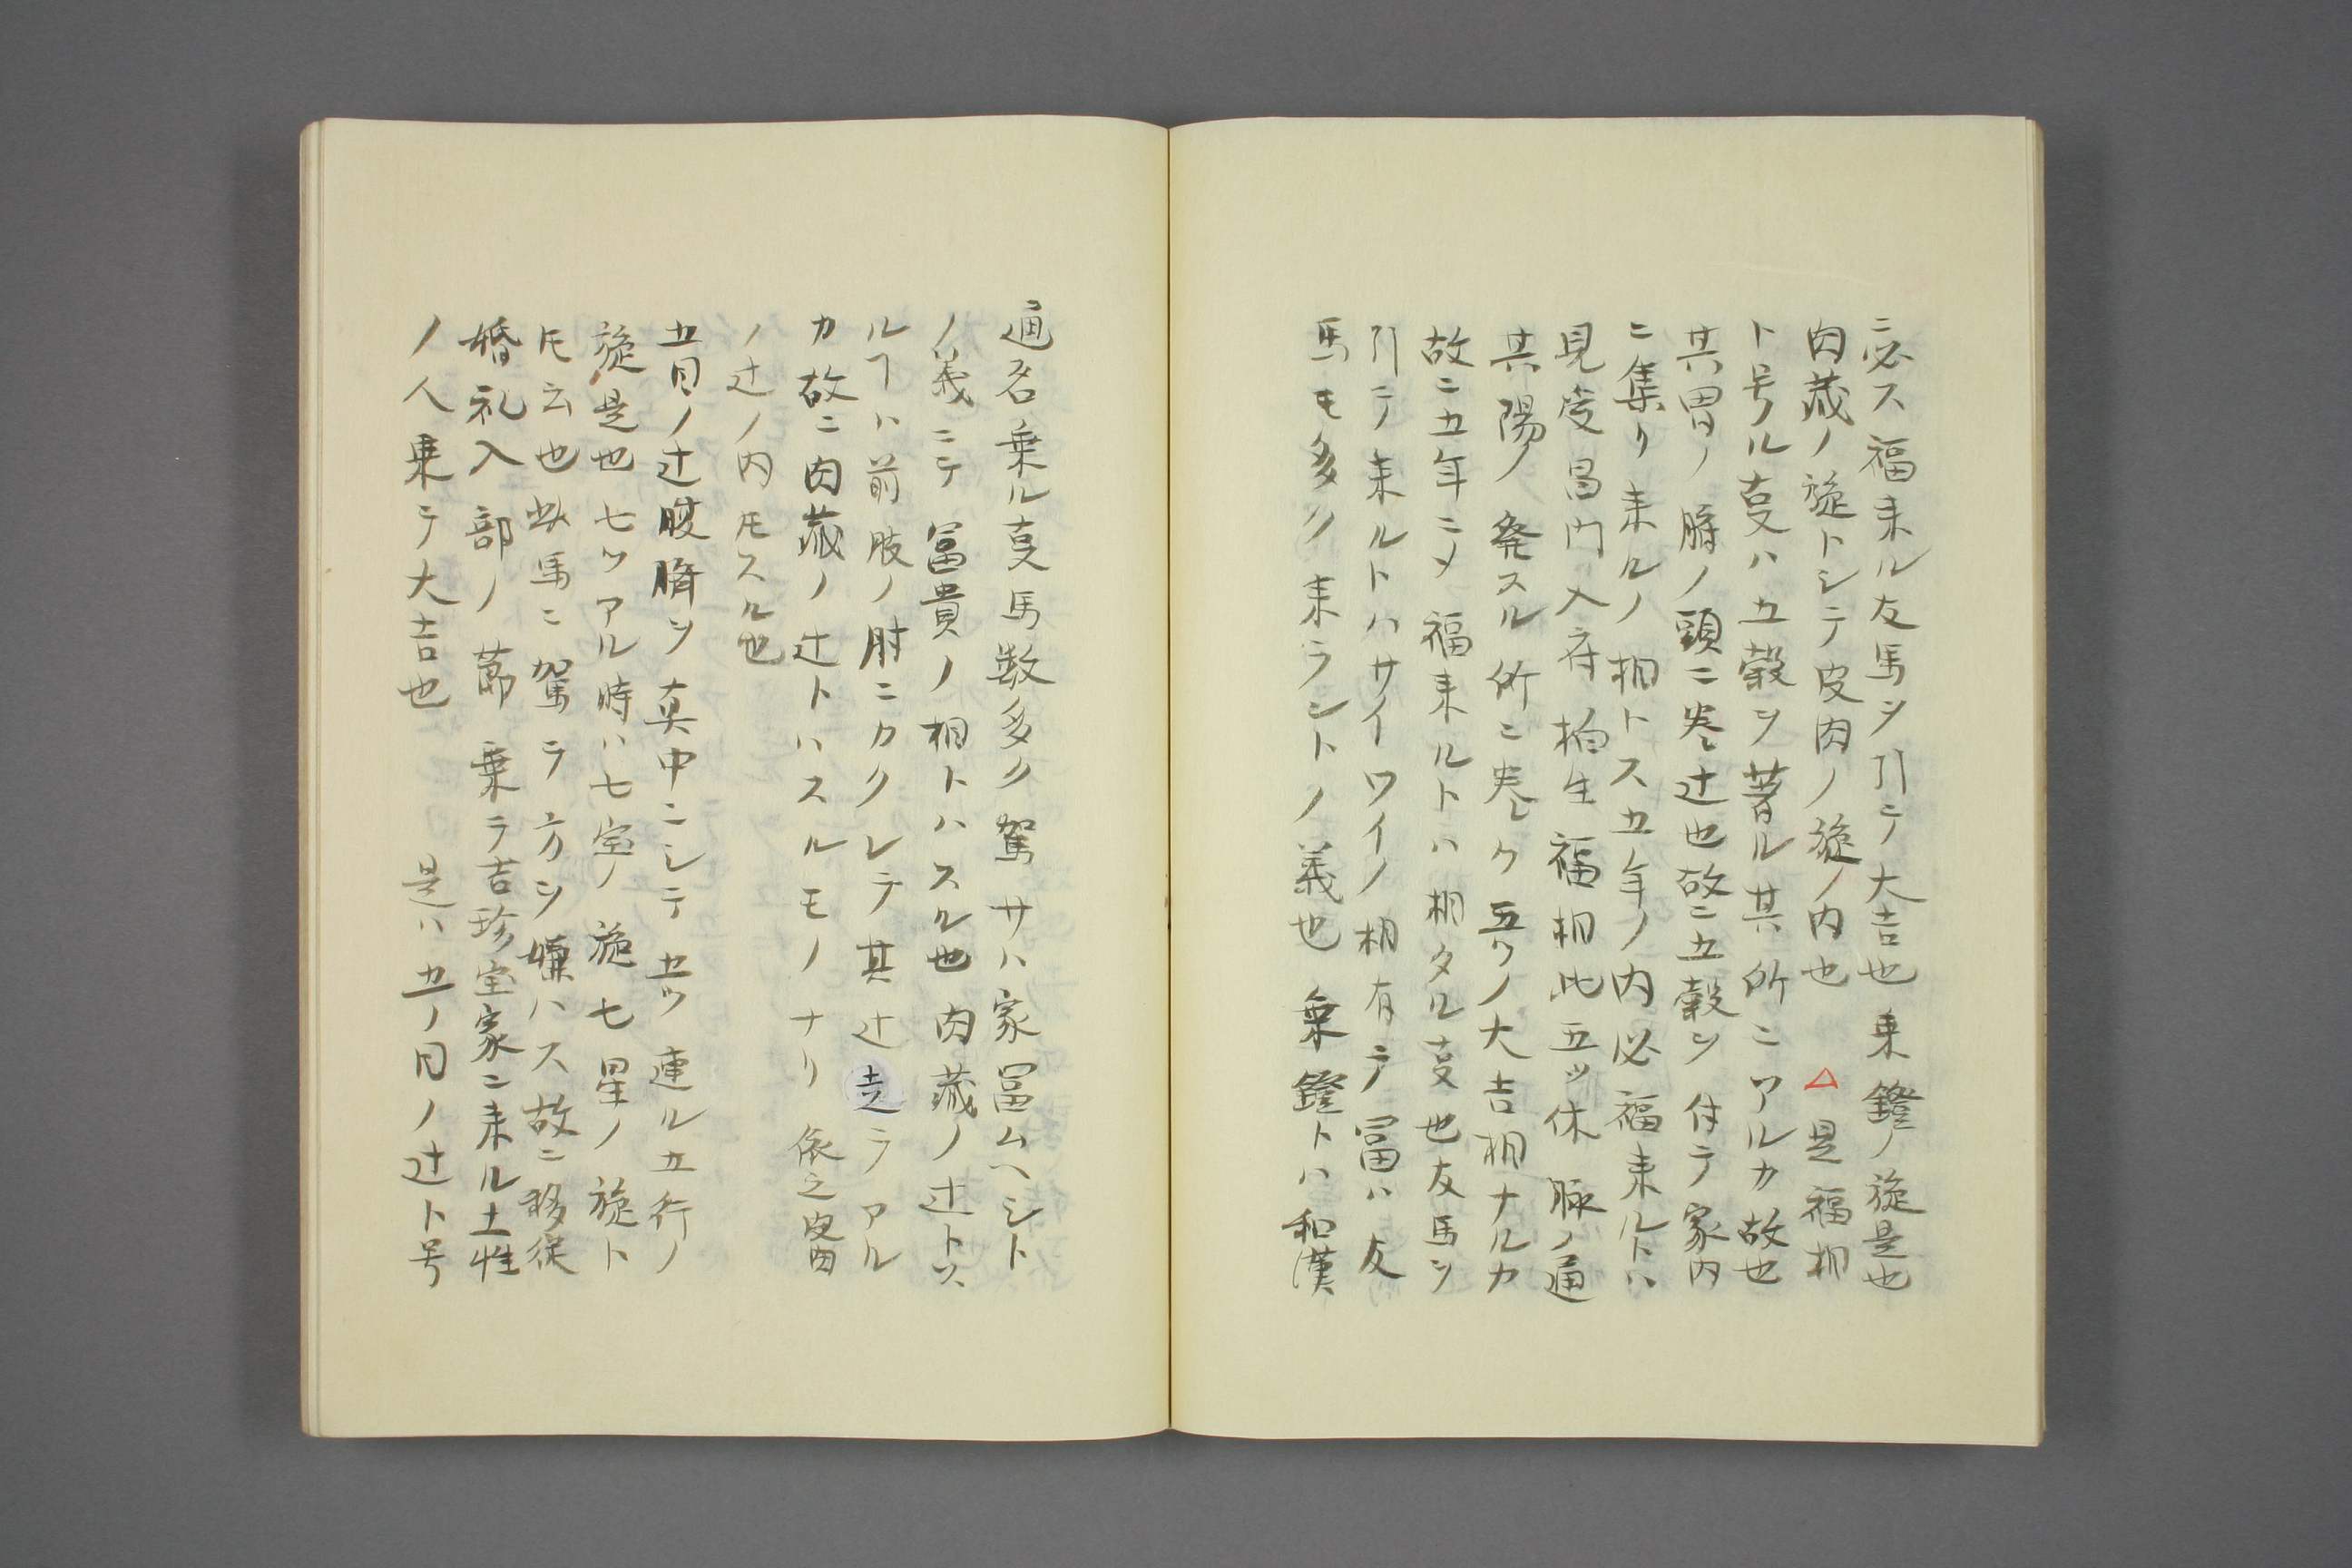 ニ必ス福来ル友馬ヲ引テ大吉也乗鐙ノ旋是也
肉蔵ノ旋トシテ皮肉ノ旋ノ内也 △是福相
ト号ル㕝ハ五穀ヲ蓄ル其所ニアルカ故也
其胃ノ腑ノ頭ニ巻辻也故ニ五穀ヲ付テ家内
ニ集リ来ルノ相トス五年ノ内必福来ルトハ
見受昌門入府 生福相此五ツ休脉ノ通
其陽ノ発スル所ニ巻ク五ツノ大吉相ナルカ
故ニ五年ニメ福来ルトハ相タル㕝也友馬ヲ
引テ来ルトハサイワイノ相有テ冨ハ友
馬モ多ク来ラントノ義也乗鐙トハ和漢
通名乗ル㕝馬数多ク駕サハ家冨ムヘシト
ノ義ニテ冨貴ノ相トハスル也肉蔵ノ辻トス
ルヿハ前肢ノ肘ニカクレテ其辻走テアル
カ故ニ肉蔵ノ辻トハスルモノナリ依之皮肉
ノ辻ノ内トモスル也
五目ノ辻腹臍ヲ真中ニシテ五ツ連ル五行ノ
旋是也七ツアル時ハ七宝ノ旋七星ノ旋ト
モ云也此馬ニ駕テ方ヲ嫌ハス故ニ移徙
婚礼入部ノ節乗テ吉珍宝家ニ来ル土性
ノ人乗テ大吉也 是ハ五ノ目ノ辻ト号